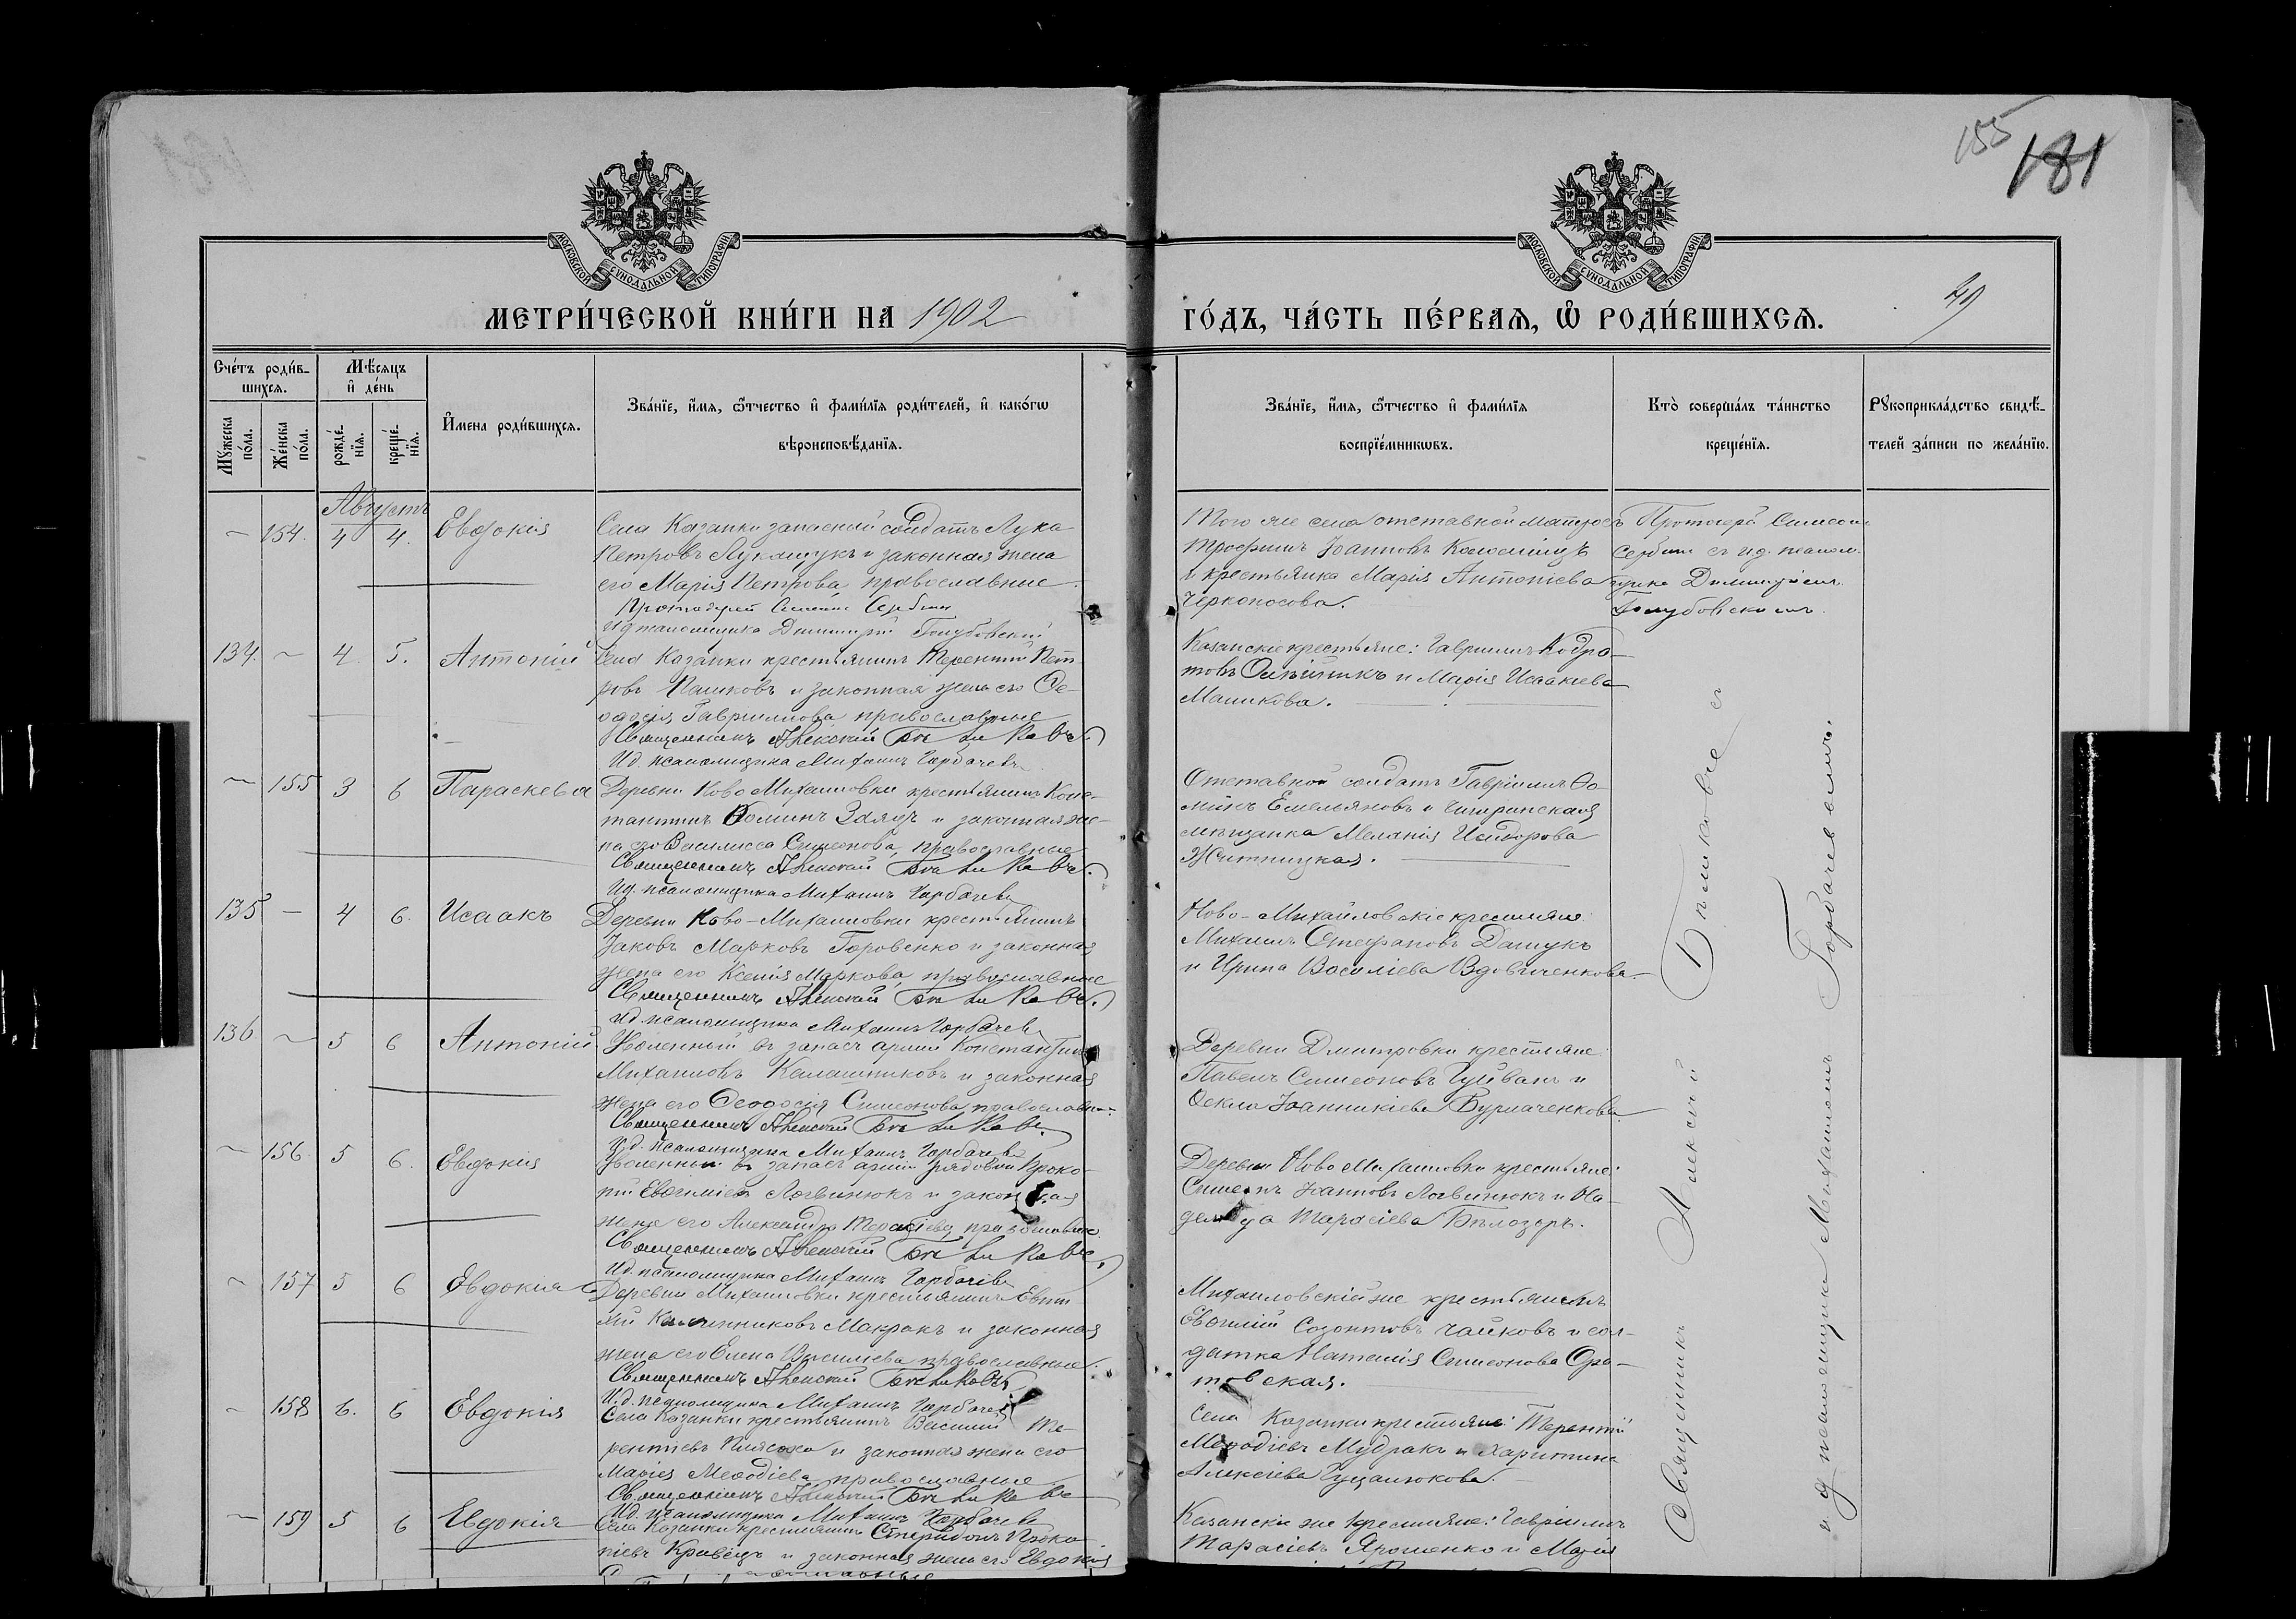 155
181
МОСКОВСКОЙ СѴНОДАЛЬНОЙ ТИПОГРАФІИ
МОСКОВСКОЙ СѴНОДАЛЬНОЙ ТИПОГРАФІИ
МЕТРИ́ЧЕСКОЙ КНИ́ГИ НА 1902
ГО́ДЪ, ЧА́СТЬ ПЕ́РВАѦ, Ѽ РОДИ́ВШИХСѦ.
Сче́тъ роди́в-
шихсѧ.
Мꙋжеска по́ла.
Же́нска по́ла.
Мѣ́сѧцъ
и҆ де́нь
рожде́-
нїѧ.
креще́-
нїѧ.
И҆мена роди́вшихсѧ.
Зва́нїе, и҆́мѧ, ѻ҆́тчество и҆ фами́лїѧ роди́телей, и҆ како́гѡ
вѣроисповѣ́данїѧ.
Зва́нїе, и҆́мѧ, ѻ҆́тчество и҆ фами́лїѧ
воспрїе́мникѡвъ.
Кто̀ соверша́лъ та́инство
креще́нїѧ.
Рꙋкоприкла́дство свидѣ́-
телей за́писи по жела́нїю.
Августъ
154. 4 4. Евдокія
Села Казанки запасный солдатъ Лука
Петровъ Лукащукъ и законная жена
его Марія Петрова, православные
Протоіерей Симеонъ Сербинъ
И д псаломщика Димитрій Голубовскій
Того же села отставной матросъ
Трофимъ Іоанновъ Коломіецъ
и крестьянка Марія Антоніева
Черконосова.
Протоіерей Симеонъ
Сербинъ съ и д. псалом-
щика Димитріемъ
Голубовскимъ.
134. 4 5. Антоній
Села Казанки крестьянинъ Терентій Пет-
ровъ Машковъ и законная жена его Ѳе-
одосія Гавриилова православные
Священникъ Алексій Бѣликовъ
И д. псаломщика Михаилъ Горбачевъ
Казанскіе крестьяне: Гавріилъ Кодра-
товъ Олѣйникъ и Марія Исаакіева
Машкова.
155 3 6 Параскева
Деревни Ново Михаиловки крестьянинъ Конс-
тантинъ Ѳоминъ и законная же-
на его Василисса Симеонова, православные
Священникъ Алексій Бѣликовъ
И д. псаломщика Михаилъ Горбачевъ
Отставной солдатъ Гавріилъ Ѳо-
минъ Емельяновъ и
мѣщанка Меланія Исидорова
Житницкая.
135 4 6. Исаакъ
Деревни Ново-Михаиловки крестьянинъ
Іаковъ Марковъ Горовенко и законная
жена его Ксенія Маркова, православные
Священникъ Алексій Бѣликовъ
И д. псаломщика Михаилъ Горбачевъ
Ново-Михайловскіе крестьяне:
Михаилъ Стефановъ Дащукъ
и Ирина Василіева Вдовиченкова.
136 5 6 Антоній
Уволенный въ запасъ арміи Константинъ
Михаиловъ Калашниковъ и законная
жена его Ѳеодосія Симеонова, православн.
Священникъ Алексій Бѣликовъ
И.д. псаломщика Михаилъ Горбачевъ
Деревни Дмитровки крестьяне:
Павелъ Симеоновъ и
Ѳекла Іоанникіева Бурлаченкова
156. 5 6. Евдокія
Уволенный въ запасъ арміи рядовой Проко-
пій Евѳиміевъ Логвинюкъ и законная
жена его Александра Тарасіева, православные
Священникъ Алексій Бѣликовъ
И.д. псаломщика Михаилъ Горбачевъ
Деревни Ново Михаиловки крестьяне:
Симеонъ Іоанновъ Логвинюкъ и На-
дежда Тарасіева Бѣлозоръ.
157 5 6 Евдокія
Деревни Михаиловки крестьянинъ
Макракъ и законная
жена его Елена Василіева православные.
Священникъ Алексій Бѣликовъ
И.д. псаломщика Михаилъ Горбачевъ
Михаиловскій же крестьянинъ
Евѳимій Созонтовъ Чайковъ и сол-
датка Наталія Симеонова Ора-
товская.
158 6. 6 Евдокія
Села Казанки крестьянинъ Василій Те-
рентіевъ и законная жена его
Марія Меѳодіева, православные
Священникъ Алексій Бѣликовъ
И.д. псаломщика Михаилъ Горбачевъ
Села Казанки крестьяне: Терентій
Меѳодіевъ Мудракъ и Харитина
Алексіева
159 5 6 Евдокія
Села Казанки крестьянинъ Спиридонъ Проко-
піевъ Кравецъ и законная жена его Евдокія
Казанскіе же крестьяне: Гавріилъ
Тарасіевъ Ярошенко и Марія
Священникъ Алексій Бѣликовъ съ
и д псаломщика Михаиломъ Горбачевымъ.